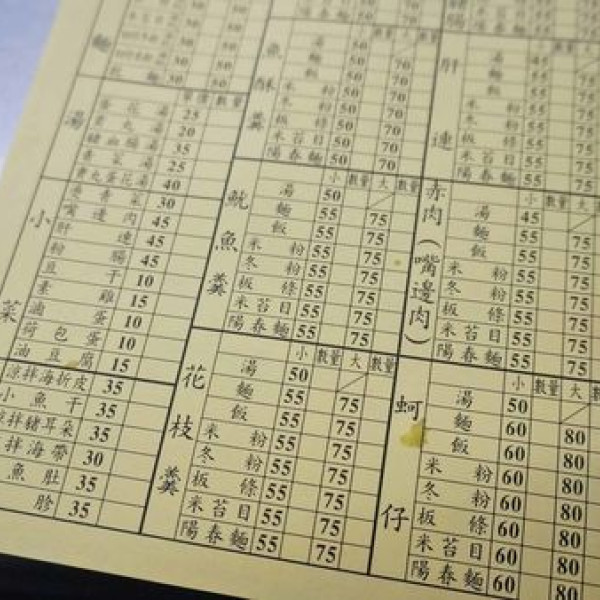 麵
湯
單價 數量
蛋花湯 25
貢丸湯 20
豬血腸湯 35
素菜湯 25
貢丸蛋花湯 40
小菜
燙青菜 30
嘴邊肉 45
肝連 45
粉腸 45
豆干 10
素雞 15
滷蛋 10
荷包蛋 10
油豆腐 15
涼拌海折皮 35
小魚干 35
涼拌豬耳朵 35
拌海帶 30
魚肚 35
胗 35
魚酥羹
湯 50
麵 50 70
飯 50 70
米粉 50 70
冬粉 50 70
板條 50 70
米苔目 50 70
陽春麵 50 70
魷魚羹
小 數量 大 數量
湯 50
麵 55 75
飯 55 75
米粉 55 75
冬粉 55 75
板條 55 75
米苔目 55 75
陽春麵 55 75
花枝羹
小 數量 大 數量
湯 50
麵 55 75
飯 55 75
米粉 55 75
冬粉 55 75
板條 55 75
米苔目 55 75
陽春麵 55 75
肝連
湯 45
麵 55
飯 55 75
米粉 55 75
冬粉 55 75
板條 55 75
米苔目 55 75
陽春麵 55 75
赤肉(嘴邊肉)
小 數量 大
湯 45
麵 55 75
飯 55 75
米粉 55 75
冬粉 55 75
板條 55 75
米苔目 55 75
陽春麵 55 75
蚵仔
小 數量 大
湯 50
麵 60 80
飯 60 80
米粉 60 80
冬粉 60 80
板條 60 80
米苔目 60 80
陽春麵 60 80